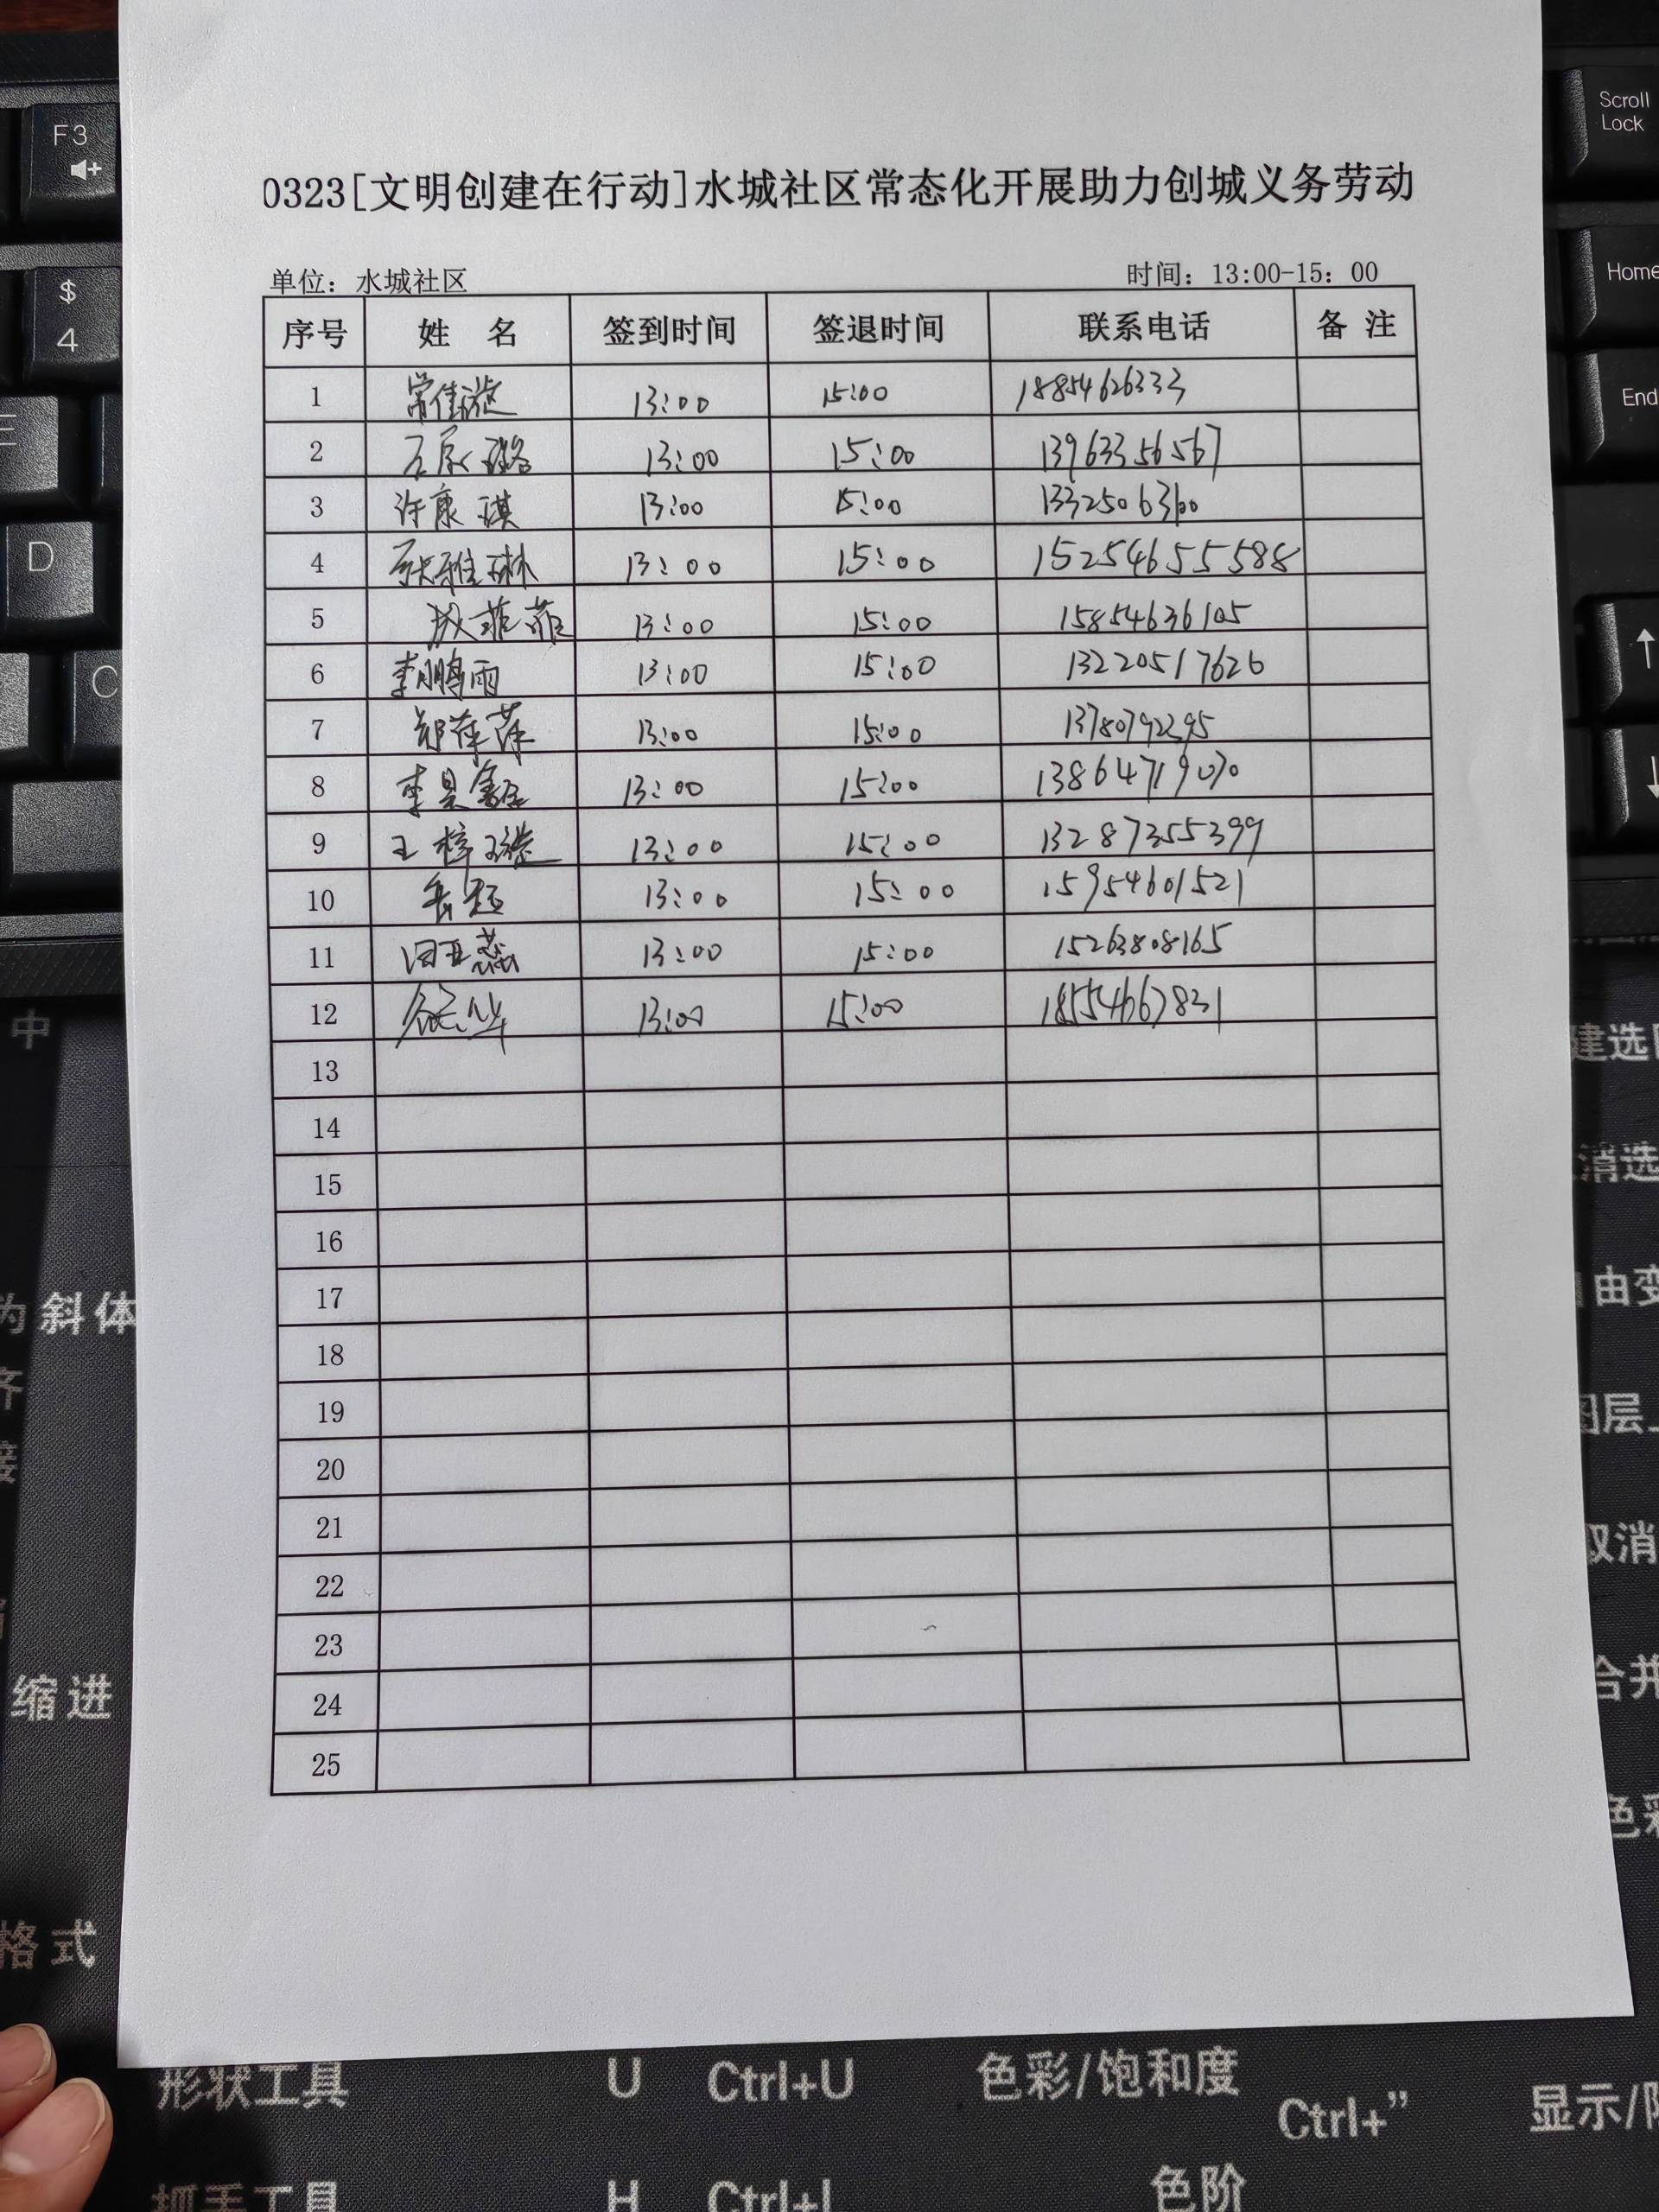 F3
Scroll
Lock
$
4
Home
End
D
C
0323[文明创建在行动]水城社区常态化开展助力创城义务劳动
单位：水城社区 时间：13:00-15：00
序号 姓 名 签到时间 签退时间 联系电话 备 注
1 常佳璇 13:00 15:00 18854626333
2 13:00 15:00 13963356567
3 许康琪 13:00 15:00 1332506360
4 张雅琳 13:00 15:00 152546555588
5 菲菲 13:00 15:00 15854636105
6 李鹏雨 13:00 15:00 13220517626
7 郑萍萍 13:00 15:00 13780792295
8 李昊 13:00 15:00 13864719070
9 王梓璇 13:00 15:00 13287355399
10 13:00 15:00 15954601521
11 田亚燕 13:00 15:00 15263808165
12 13:00 15:00 18554667831
13
14
15
16
17
18
19
20
21
22
23
24
25
中
建选
消选
为斜体
由变
图层
取消
缩进
合并
色彩
格式
形状工具 U Ctrl+U 色彩/饱和度 Ctrl+” 显示/
抓手工具 H Ctrl+L 色阶